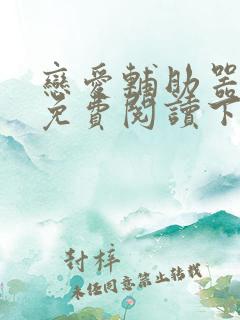 戀愛輔助器
免費閱讀下
封梓
未经同意禁止转载